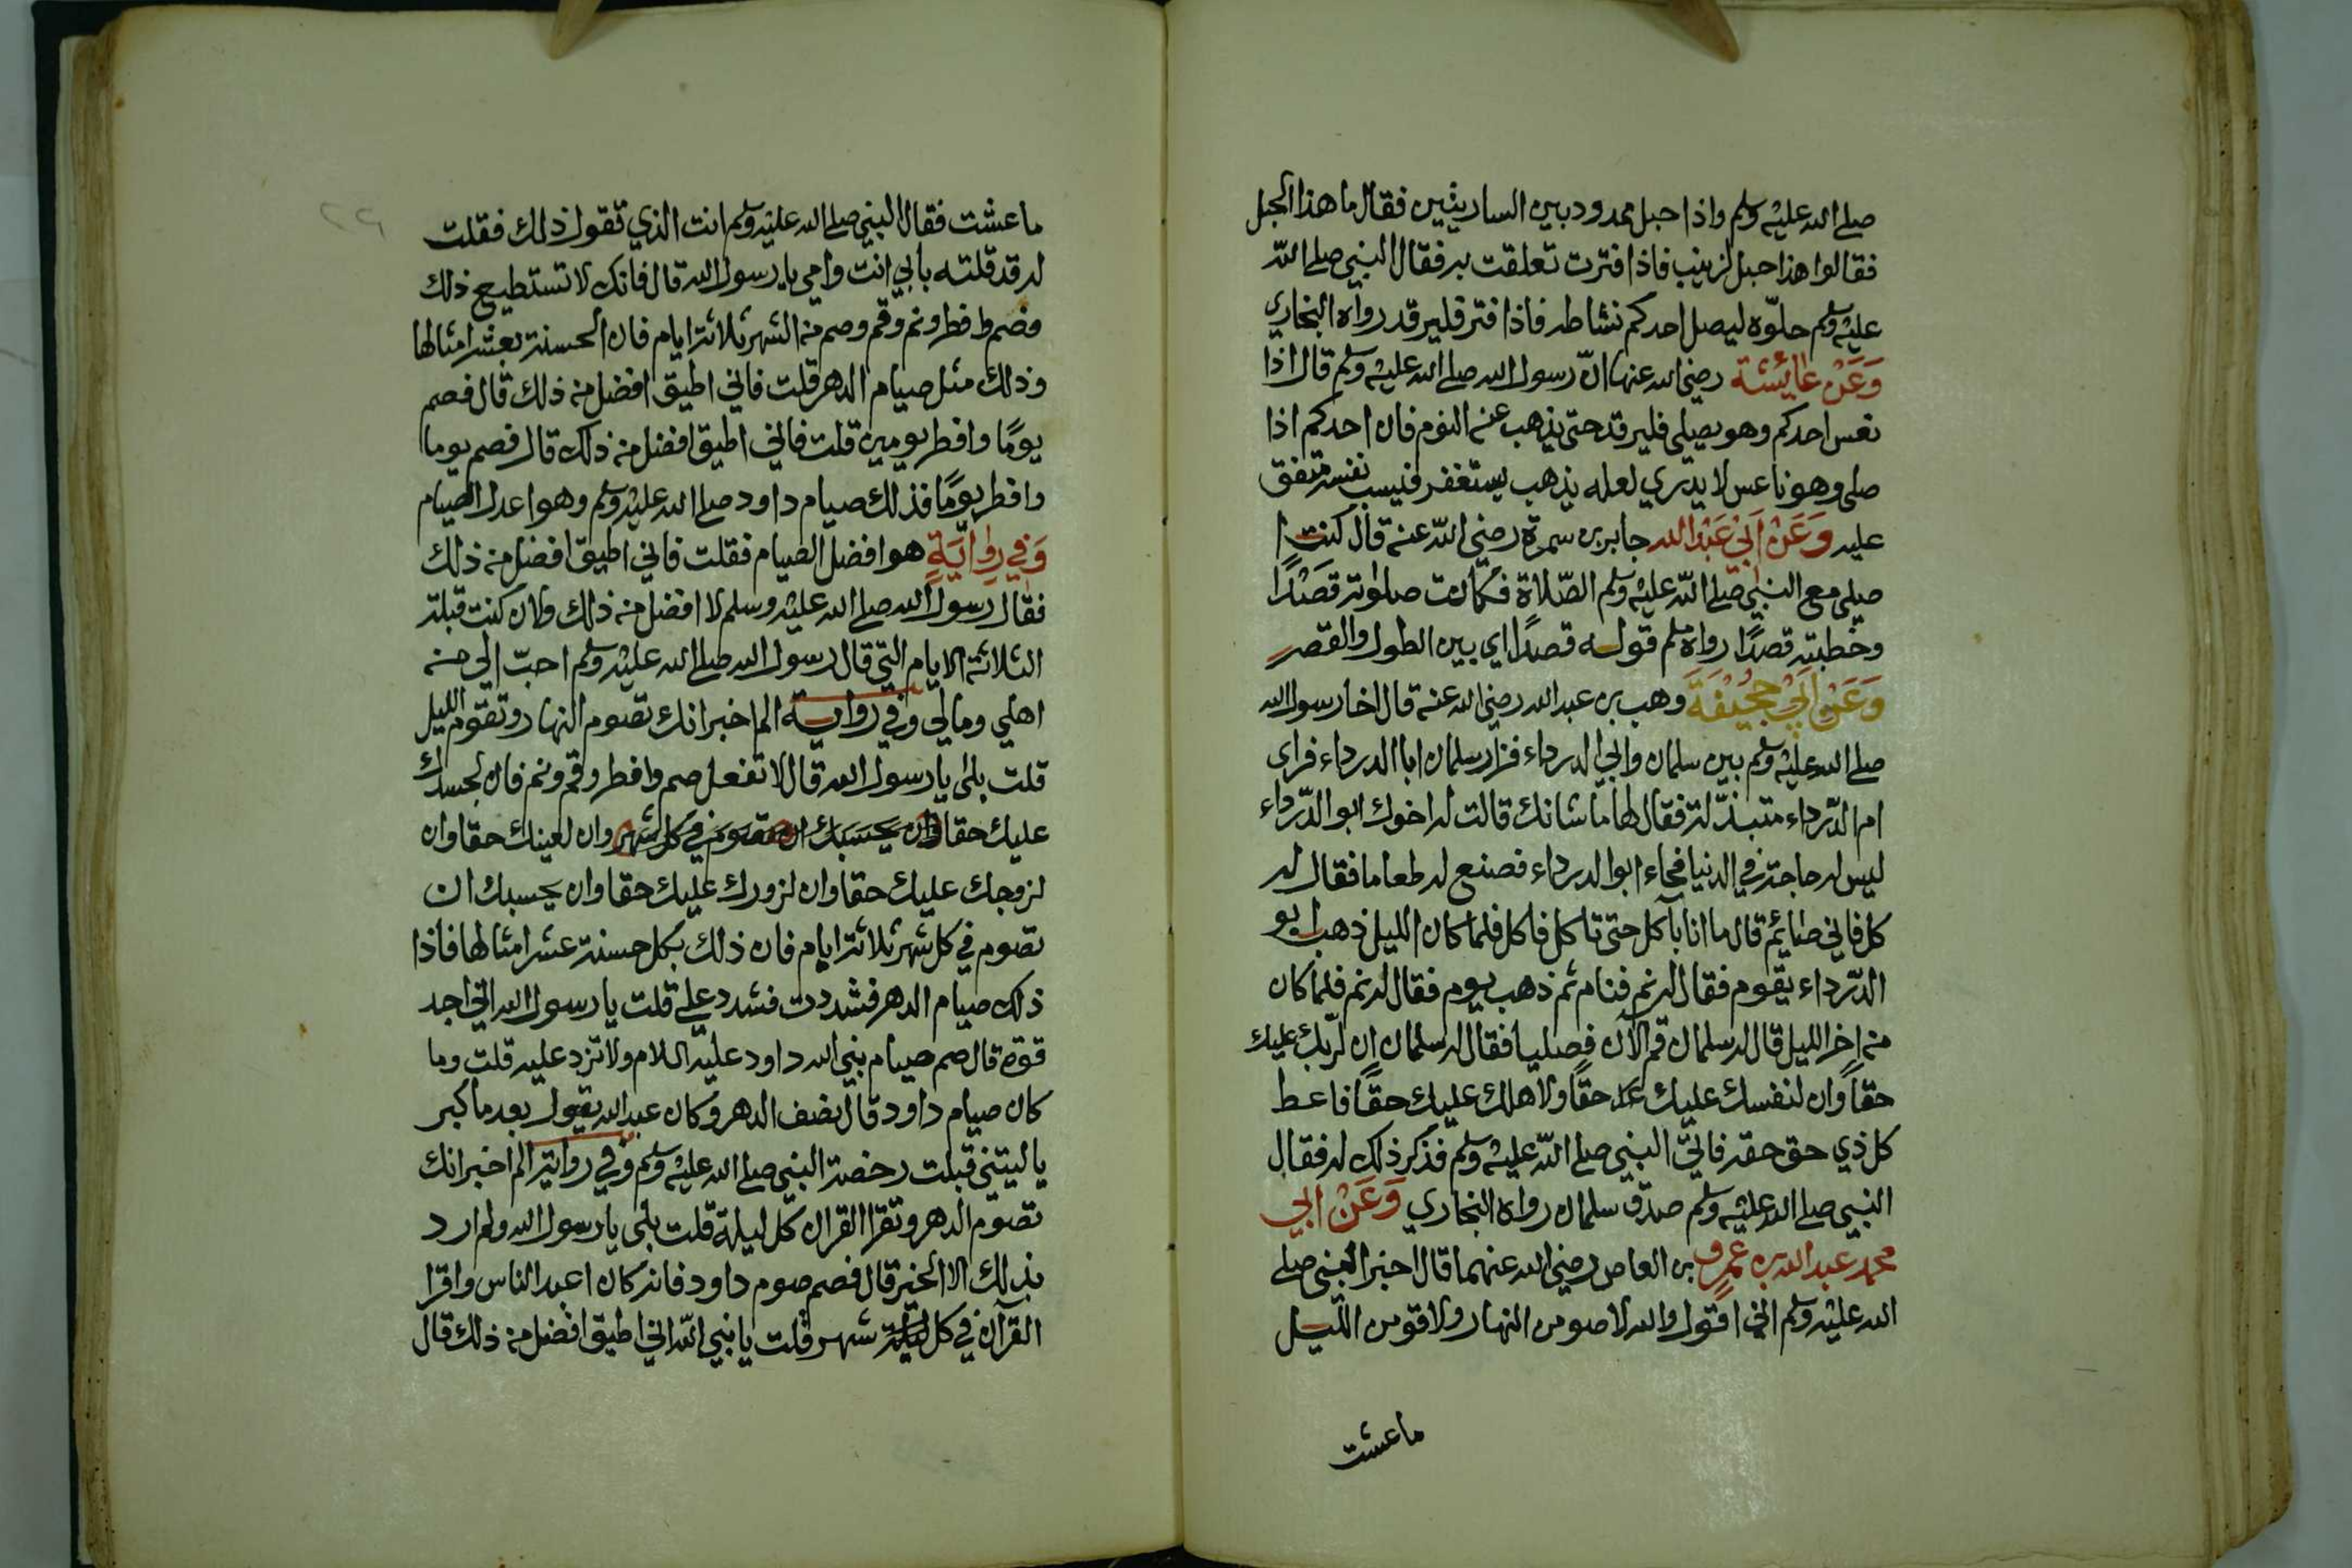 صلى الله عليه وسلم واذا حبل ممدود بين الساريتين فقال ما هذا الحبل
فقالوا هذا حبل لزينب فاذا فترت تعلقت به فقال النبي صلى الله
عليه وسلم حلوّه ليصل احدكم نشاطه فاذا فتر فليرقد رواه البخاري
وَعَنْ عَائِشَة رضي الله عنها انّ رسول الله صلى الله عليه وسلم قال اذا
نعس احدكم وهو يصلي فليرقد حتى يذهب عنه النوم فان احدكم اذا
صلى وهو ناعس لا يدري لعله يذهب يستغفر فيسب نفسه متفق
عليه وَعَنْ اَبِيْ عَبْد الله جابر بن سمرة رضي الله عنه قال كنت ا
صلي مع النبي صلى الله عليه وسلم الصّلاة فكانت صلوته قصْدًا
وخطبته قصدًا رواه مسلم قوله قصدًا اي بين الطول والقصر
وَعَنْ اَبِيْ جُحَيْفَةَ وهب بن عبد الله رضي الله عنه قال اخا رسول الله
صلى الله عليه وسلم بين سلمان وابي الدرداء فزار سلمان ابا الدرداء فراى
ام الدّرداء متبذّلة فقال لها ما شانك قالت له اخوك ابو الدّرداء
ليس له حاجة في الدنيا فجاء ابو الدرداء فصنع له طعاما فقال له
كل فاني صايم قال ما انا بآكل حتى تاكل فاكل فلما كان الليل ذهب ابو
الدّرداء يقوم فقال له نم فنام ثم ذهب يوم فقال له نم فلما كان
من اخر الليل قال له سلمان قم الآن فصليا فقال له سلمان ان لربك عليك
حقاً وان لنفسك عليك حقاً ولاهلك عليك حقًا فاعط
كل ذي حق حقه فاتى النبي صلى الله عليه وسلم فذكر ذلك له فقال
النبي صلى الله عليه وسلم صدق سلمان رواه البخاري وَعَنْ ابي
محمد عبد الله بن عمرو بن العاص رضي الله عنهما قال اخبر النبي صلى
الله عليه وسلم اني اقول والله لاصومن النهار ولاقومن الليل
ما عشت
ما عشت فقال النبي صلى الله عليه وسلم انت الذي تقول ذلك فقلت
له قد قلته بابي انت وامي يا رسول الله قال فانك لا تستطيع ذلك
فصم وافطر ونم وقم وصم من الشهر ثلاثة ايام فان الحسنة بعشر امثالها
وذلك مثل صيام الدهر قلت فاني اطيق افضل من ذلك قال فصم
يومًا وافطر يومين قلت فاني اطيق افضل من ذلك قال فصم يوما
وافطر يومًا فذلك صيام داود صلى الله عليه وسلم وهو اعدل الصيام
وَفِي رِوَايَةٍ هو افضل الصيام فقلت فاني اطيق افضل من ذلك
فقال رسول الله صلى الله عليه وسلم لا افضل من ذلك ولان كنت قبلت
الثلاثة الايام التي قال رسول الله صلى الله عليه وسلم احبّ الي من
اهلي ومالي وفي رواية الم اخبر انك تصوم النهار وتقوم الليل
قلت بلى يا رسول الله قال لا تفعل صم وافطر وقم ونم فان لجسدك
عليك حقا وان بحسبك ان تصوم في كل شهر وان لعينك حقا وان
لزوجك عليك حقا وان لزورك عليك حقا وان بحسبك ان
تصوم في كل شهر ثلاثة ايام فان ذلك بكل حسنة عشر امثالها فاذا
ذلك صيام الدهر فشددت فشدد علي قلت يا رسول الله اني اجد
قوّة قال صم صيام نبي الله داود عليه السلام ولا تزد عليه قلت وما
كان صيام داود قال نصف الدهر وكان عبد الله يقول بعد ما كبر
يا ليتني قبلت رخصة النبي صلى الله عليه وسلم وفي رواية الم اخبر انك
تصوم الدهر وتقرا القران كل ليلة قلت بلى يا رسول الله ولم ارد
بذلك الا الخير قال فصم صوم داود فانه كان اعبد الناس واقرا
القرآن في كل ليلة شهر قلت يا نبي الله اني اطيق افضل من ذلك قال